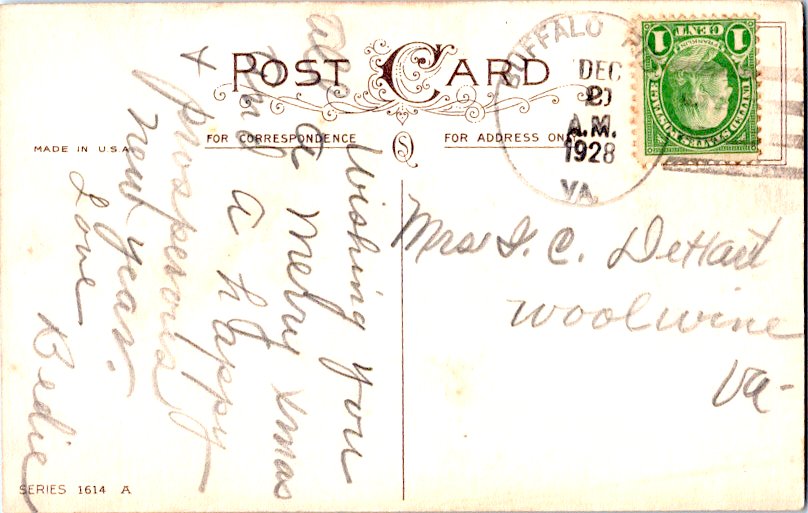 POST CARD
FOR CORRESPONDENCE
FOR ADDRESS ON
MADE IN U.S.A.
S
BUFFALO
DEC
A.M.
1928
VA.
1 CENT 1
FRANKLIN
UNITED STATES POSTAGE
Wishing you
all a merry Xmas
and a happy
& prosperous
new year.
Love
Bedie
Mrs I. C. DeHart
Woolwine
Va-
SERIES 1614 A